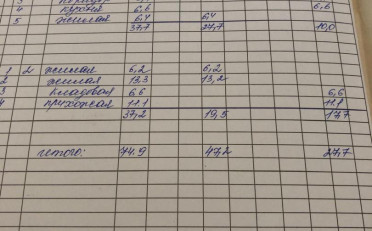 4 кухня 6,6 6,6
5 жилая 6,4 6,4
37,7 27,7 10,0
1 2 жилая 6,2 6,2
2 жилая 13.3 13,2
3 кладовая 6,6 6,6
4 прихожая 11.1 11,1
37,2 19,5 17,7
Итого: 74.9 47,2 27,7